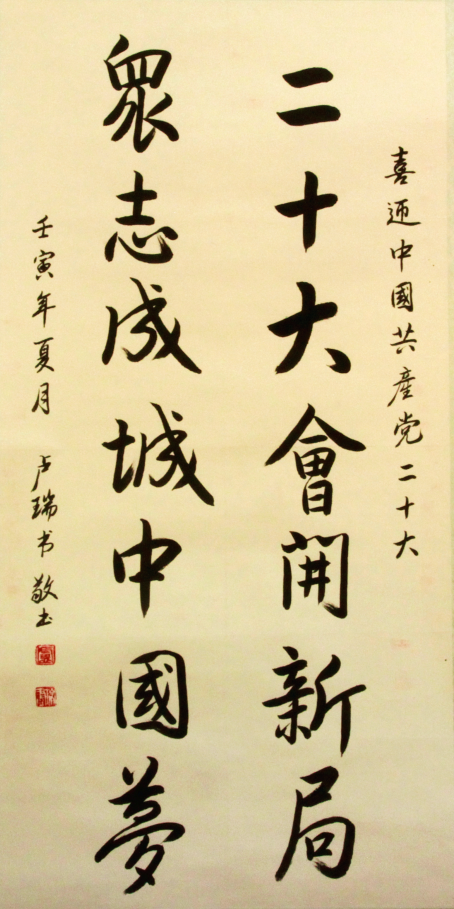 喜迎中國共產党二十大
二十大會開新局
眾志成城中國夢
壬寅年夏月 卢瑞书敬书